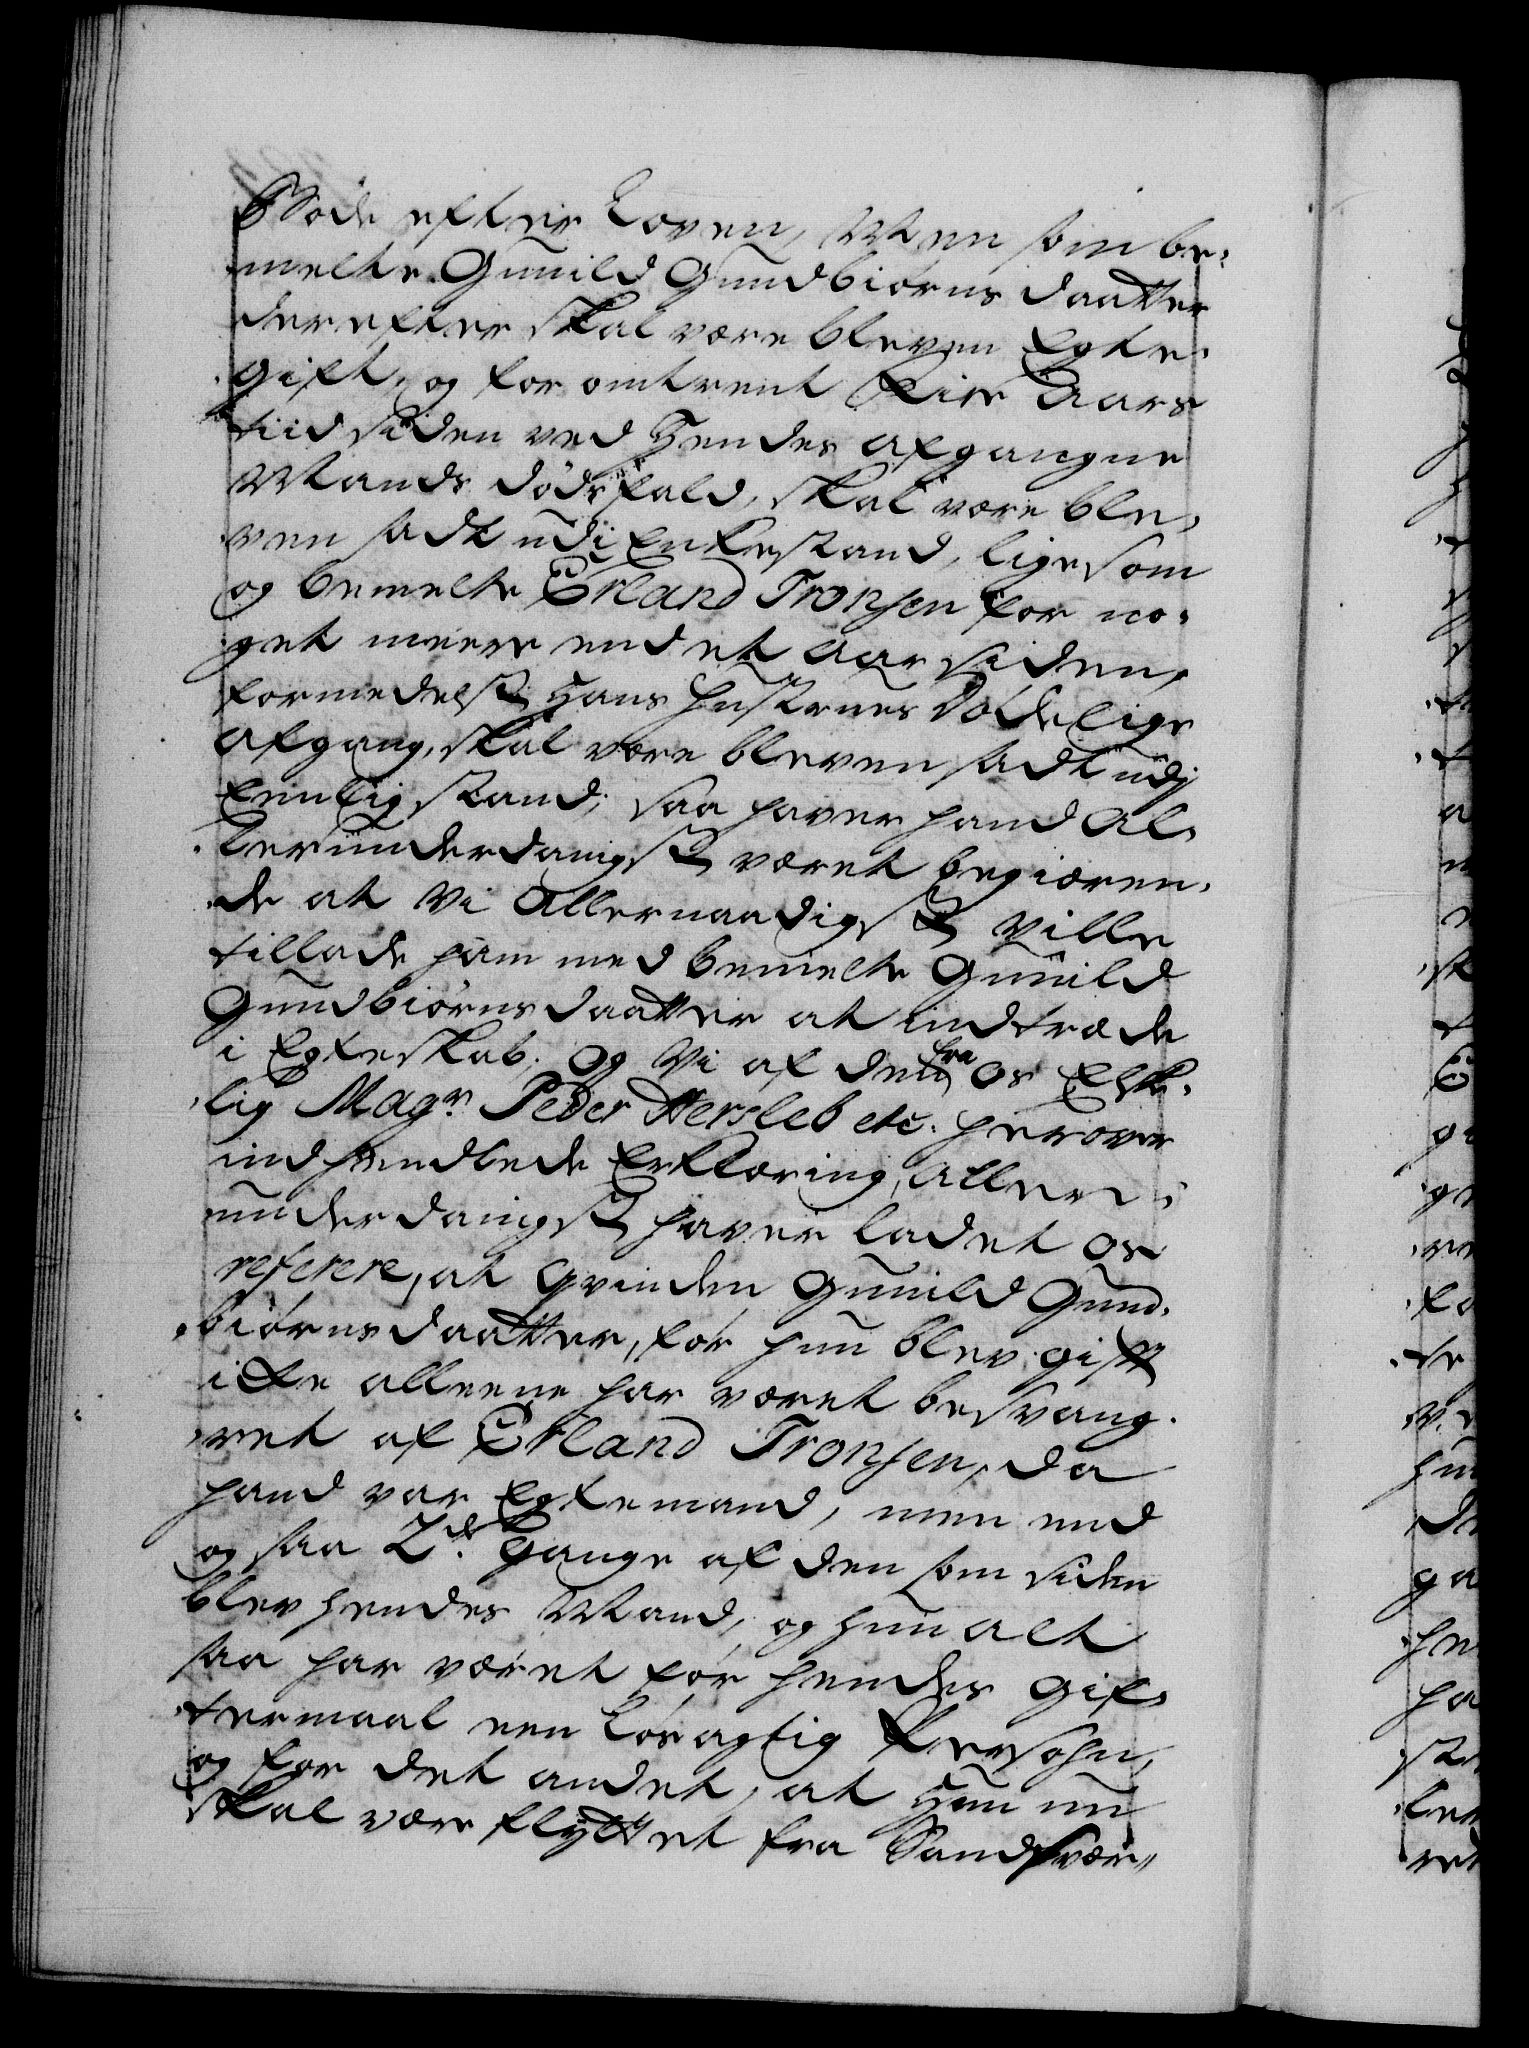 Bøde efter Loven, Men som be-
melte Gunild Gundbiørns daatter
derefter skal være bleven Egte-
gift, og for omtrent Fire Aars
tiid siden ved Hendes afgangne
Mands dødsfald, skal være ble-
ven sadt udi Enkestand, ligesom
og bemelte Erland Tronsen for no-
get meere end et Aar siden,
formedelst Hans Hustrues Dødelige
afgang, skal være bleven sadt udj
Eenlig stand; saa haver hand Al-
lerunderdanigst været begiæren-
de at Vi Allernaadigst Ville
tillade ham med bemelte Gunild
Gundbiørnsdaatter at indtræde
i Egteskab. Og Vi af den fra Os Elske-
lig Magr. Peder Hersleb etc. herover
indhendtede Erklæring, aller-
underdanigst haver ladet Os
referere, at Qvinden Gunild Gund-
biørnsdaatter, før hun blev gift
icke alleene har været besvang-
ret af Erland Tronsen, da
hand var Egtemand, men end
og saa 2de. Gange af den som siden
blev hendes Mand, og hun alt
saa har været før hendes Gif-
termaal een Løsagtig Persohn,
og for det andet, at Hun nu
skal være flyttet fra Sandsvær